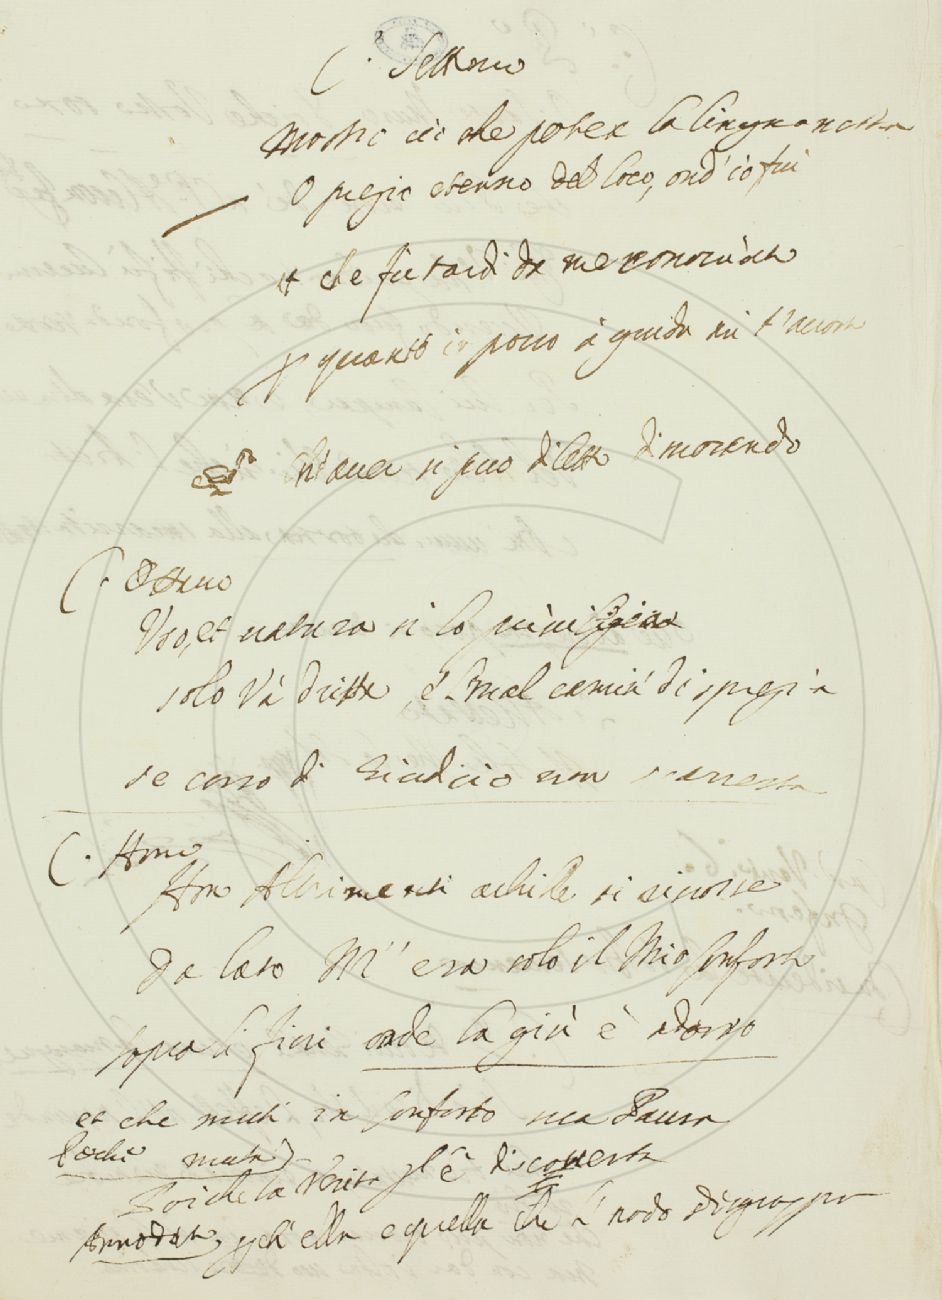 C. Settimo
Mostrò ciò che potea la lingua nostra
O pregio eterno del loco, ond' io fui
et che fu tardi da me conosciuta
p quanto in poco a guida mi t'accosta
ch'avea si puo diletto dimorando
C. Ottavo
Uso, et natura si la privilegia
solo va dritta, e 'l mal camin' dispregia
se corso di Giudicio non s'arresta
C. Nono
Non altrimenti achille si riscosse
Da lato M'' era solo il Mio Conforto
sopra li fiori onde la giù è adorno
et che muti in Conforto sua Paura
Poiche la verità gl'è discoverta
Annodar, ella e quella che 'l nodo disgroppa